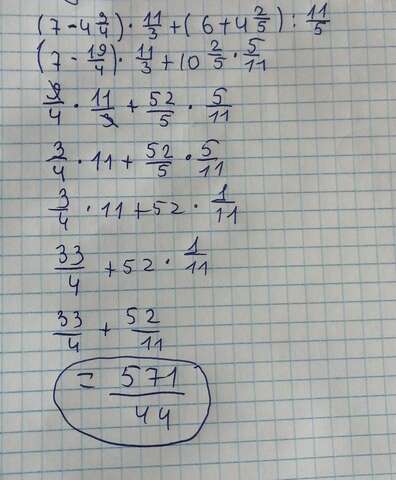 (7 - 4 3/4) · 11/3 + (6 + 4 2/5) : 11/5
(7 - 19/4) · 11/3 + 10 2/5 · 5/11
9/4 · 11/3 + 52/5 · 5/11
3/4 · 11 + 52/5 · 5/11
3/4 · 11 + 52 · 1/11
33/4 + 52 · 1/11
33/4 + 52/11
= 571/44